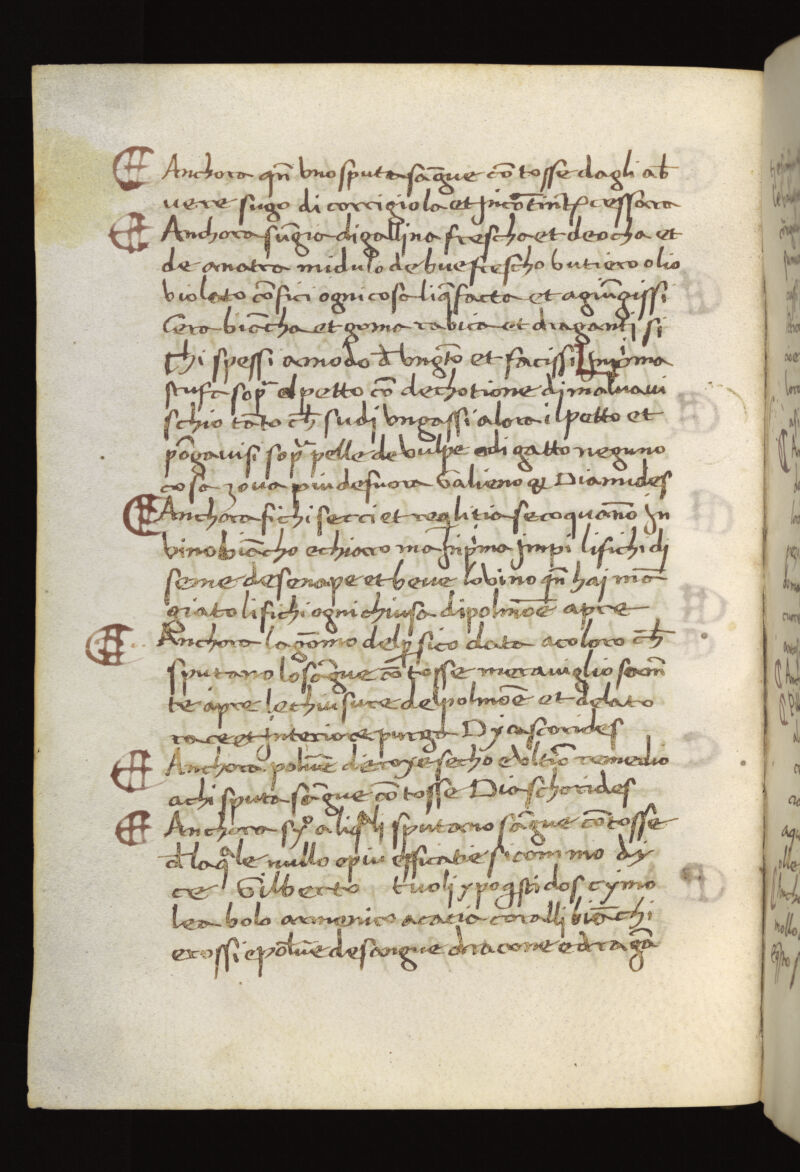 Anchora qñ uno sputa sāgue cō tosse dagli ab
vere sugo di corrigiola et
Anchora sūgia di gallina frescha et de ocha et
de anatra midulo de bue frescho butiero olio
violato cōfici ogni cosa liqfacta et agiūgissi
Cera biācha et goma rabica et draganti si
chi spessi a modo d ungto et facissi Inprima
stufa sopra el petto cō dechotione di malvavi
schio tāto ch sudi ungassi alora il petto et
pōgavisi sopra pelle de vulpe o di gatto neguno
cosa zova piu de fuora Galieno Diamides
Anchora fichi secci et reglitia se coquāno In
vino biācho e chiaro ma Inprima Impi li fichi di
seme de senape et beve lo vino qñ hai mā
giato li fichi ogni chiusa di polmōe apre
Anchora la gōma del psico data a coloro ch
sputano lo sāgue cō tosse meraviglosam
te apre le chiusure del polmōe et de lato
race et interiore purga Dyascorides
Anchora polve de roxe secho e ultio remedio
a chi sputa sāgue cō tosse Diaschorides
Anchora a liqli sputano sāgue cō tosse
d laqle nullo e piu efficatie si commo dy
ce Gilberto tuoli ypoqstidos cymo
lea bolo armenico acacia coralli biāchi
e rossi e polve de sangue dracone e dragā